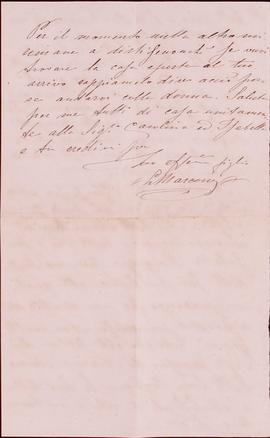 Per il momento nulla altro mi
rimane a distificarti. Se vuoi
trovare la casa aperta al tuo
arrivo sappiamelo dire acciò pos
sa andarvi colla donna. Saluta
per me tutti di casa unitamen
te alla Sigª Carolina ed
e tu credimi
tuo affº figlio
G Marconi